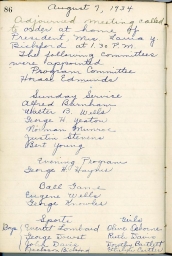 86 August 7, 1934
Adjourned meeting called
to order at home of
President Mrs. Laura G.
Bickford at 1.30 P.M.
The following Committees
were appointed
Program Committee
Horace Edmunds
Sunday Service
Alfred Burnham
Walter B. Wells
George H. Yeaton
Norman Munroe
Justin Stevens
Bert Young
Evening Program
George H. Hughes
Ball Game
Eugene Wells
George Knowles
Sports Girls
Boys Everett Lombard Olive Osborne
George Doust Ruth Davis
Jack Davis